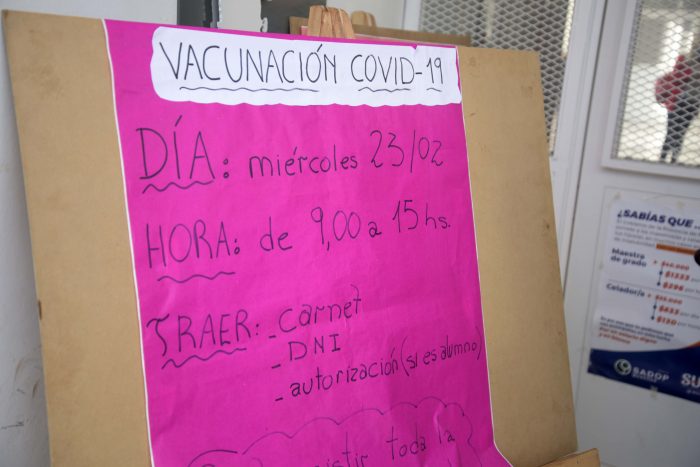 VACUNACIÓN COVID-19
DÍA: miércoles 23/02
HORA: de 9,00 a 15 hs.
TRAER: - carnet
- DNI
- autorización (si es alumno)
toda la
¿SABÍAS QUE
Maestra
de grado
$1333
$296
Celador/a
$433
$130
SADOP